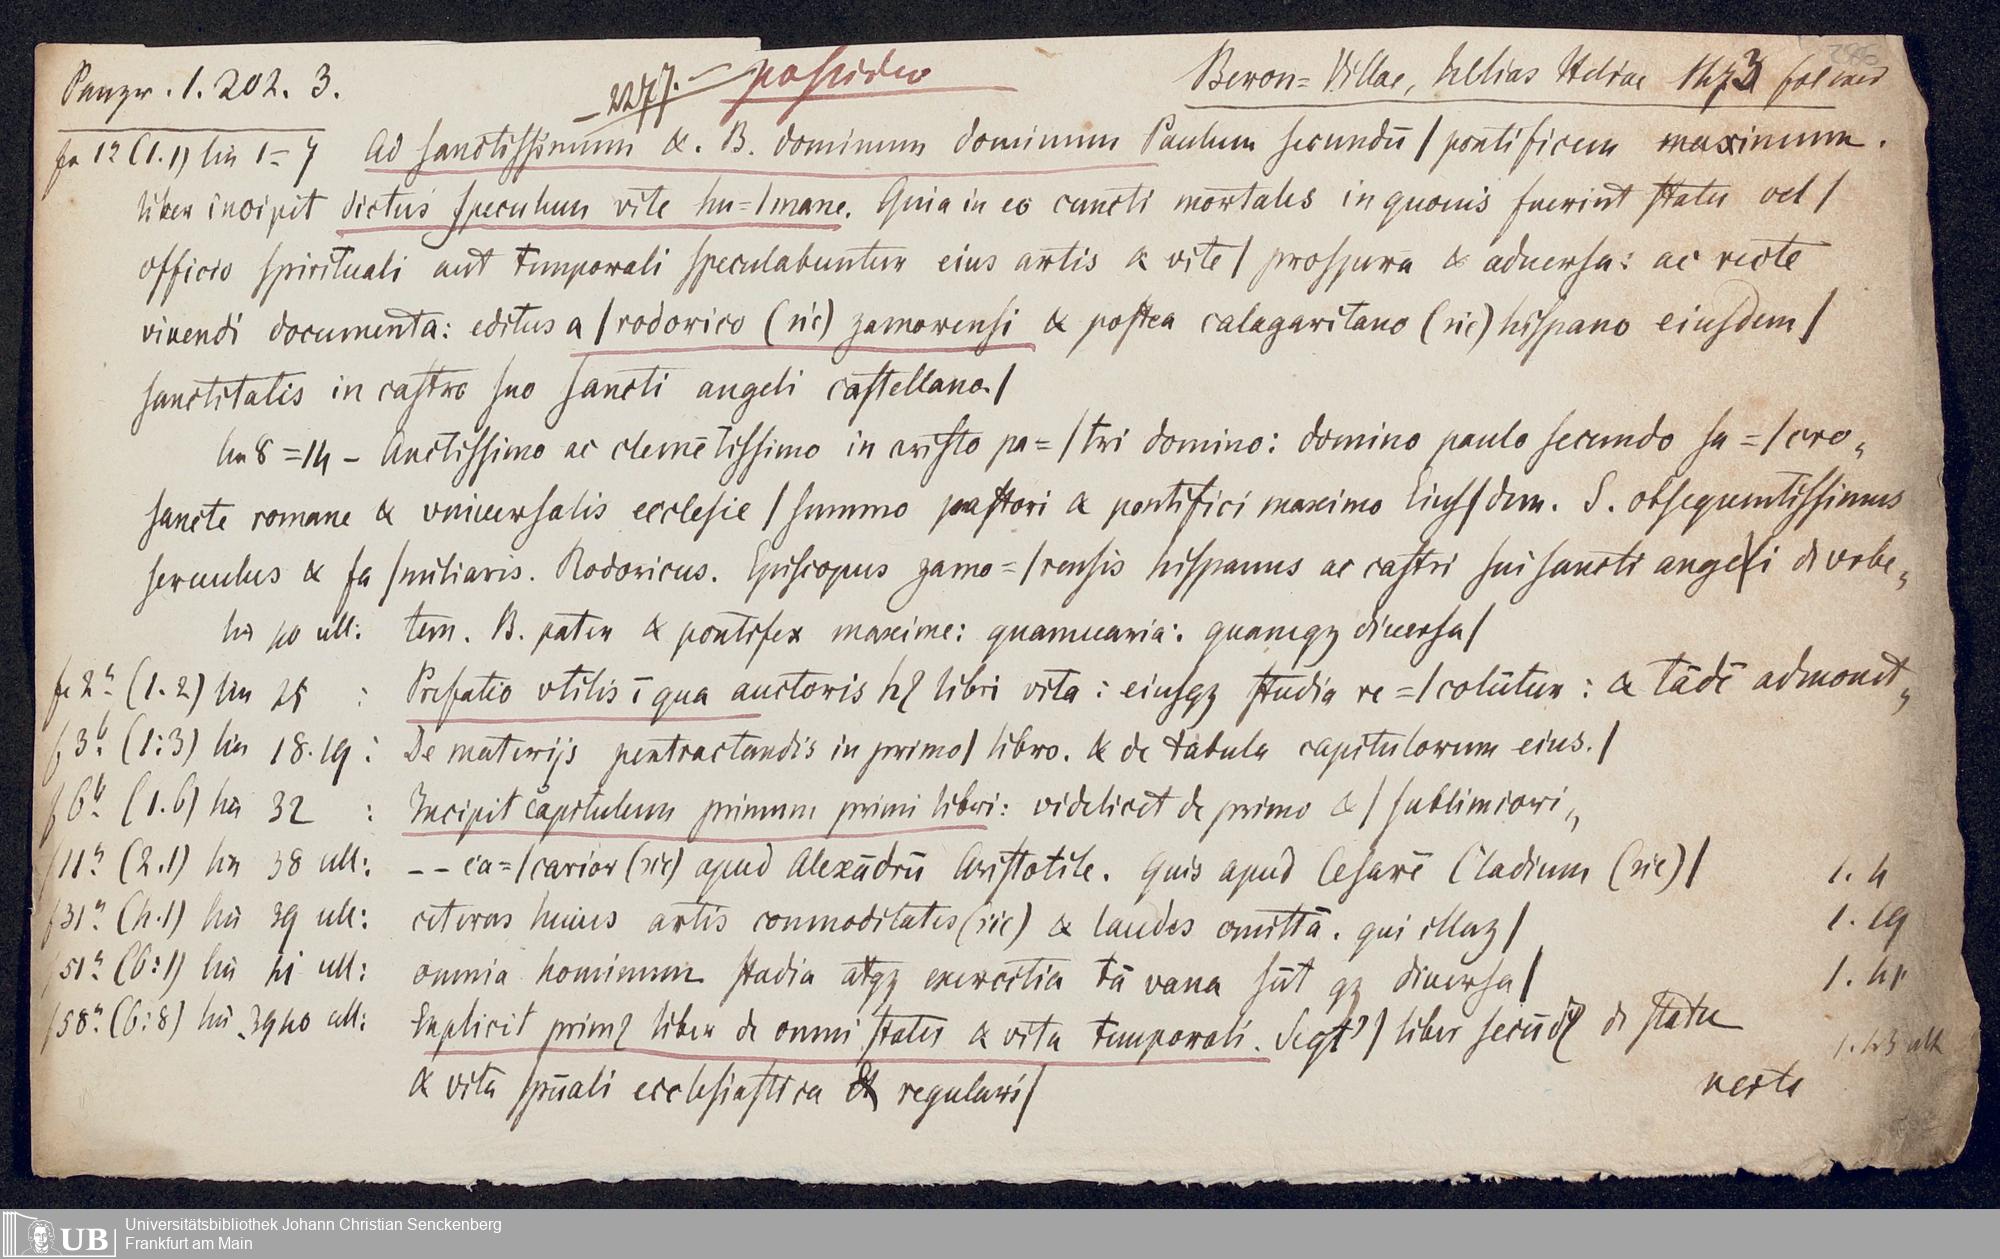 Panzer. 1. 202. 3.
2277. possideo
Beron=Villae, helias Heliae 1473 fol
fa 1a (1.1) lin 1=7 Ad sanctissimum &. B. dominum dominum Paulum secundū / pontificem maximum.
liber incipit dictus speculum vite hu=/mane. Quia in eo cuncti mortales in quouis fuerint statu vel /
officio spirituali aut temporali speculabuntur eius artis & vite / prospera & aduersa: ac recte
viuendi documenta: editus a / rodorico (sic) zamorensi & postea calagaritano (sic) hispano eiusdem /
sanctitatis in castro suo sancti angeli castellano. /
lin 8=14 – Anctissimo ac clemētissimo in cristo pa=/tri domino: domino paulo secundo sa=/cro„
sancte romane & vniuersalis ecclesie / summo pastori & pontifici maximo Eius/dem. S. obsequentissimus
seruulus & fa/miliaris. Rodoricus. Episcopus zamo=/rensis hispanus ac castri sui sancti angeli de vrbe„
lin 40 ult: tem. B. pater & pontifex maxime: quamuaria: quamqz diuersa /
fa 2a (1.2) lin 25 : Prefatio vtilis ī qua auctoris hꝰ libri vita: eiusqz studia re=/colūtur: & tādē admonet„
f 3b (1:3) lin 18.19: De materijs pertractandis in primo / libro. & de tabula capitulorum eius. /
f 6b (1.6) lin 32 : Incipit capitulum primum primi libri: videlicet de primo & / sublimiori„
f 11a (2.1) lin 38 ult: – – ca=/carior (sic) apud Alexādrū Aristotile. Quis apud Cesarē Cladium (sic) / 1. 4
f 31a (4.1) lin 39 ult: ceteras huius artis commoditates (sic) & laudes omittā. qui illaz / 1. 19
f 51a (6:1) lin 41 ult: omnia hominum studia atqz exercitia tā vana sūt qz diuersa / 1. 41
f 58a (6:8) lin 39 40 ult: Explicit primꝰ liber de omni statu & vita temporali. Seqt² / liber secūdꝰ de statu 1. 43 ult
& vita spūali ecclesiastica & regulari /
verte
Universitätsbibliothek Johann Christian Senckenberg
UB Frankfurt am Main